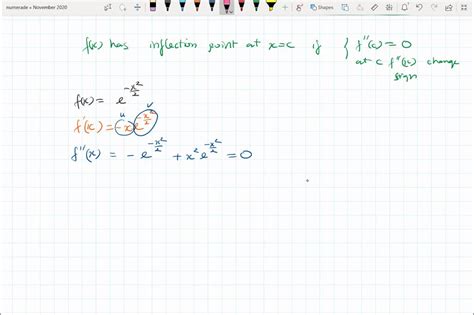 numerade • November 2020
Shapes
f(x) has inflection point at x=c if { f''(c) = 0
at c f''(x) change
sign
f(x) = e^{-x²/2}
u v
f'(x) = -x e^{-x²/2}
f''(x) = - e^{-x²/2} + x² e^{-x²/2} = 0